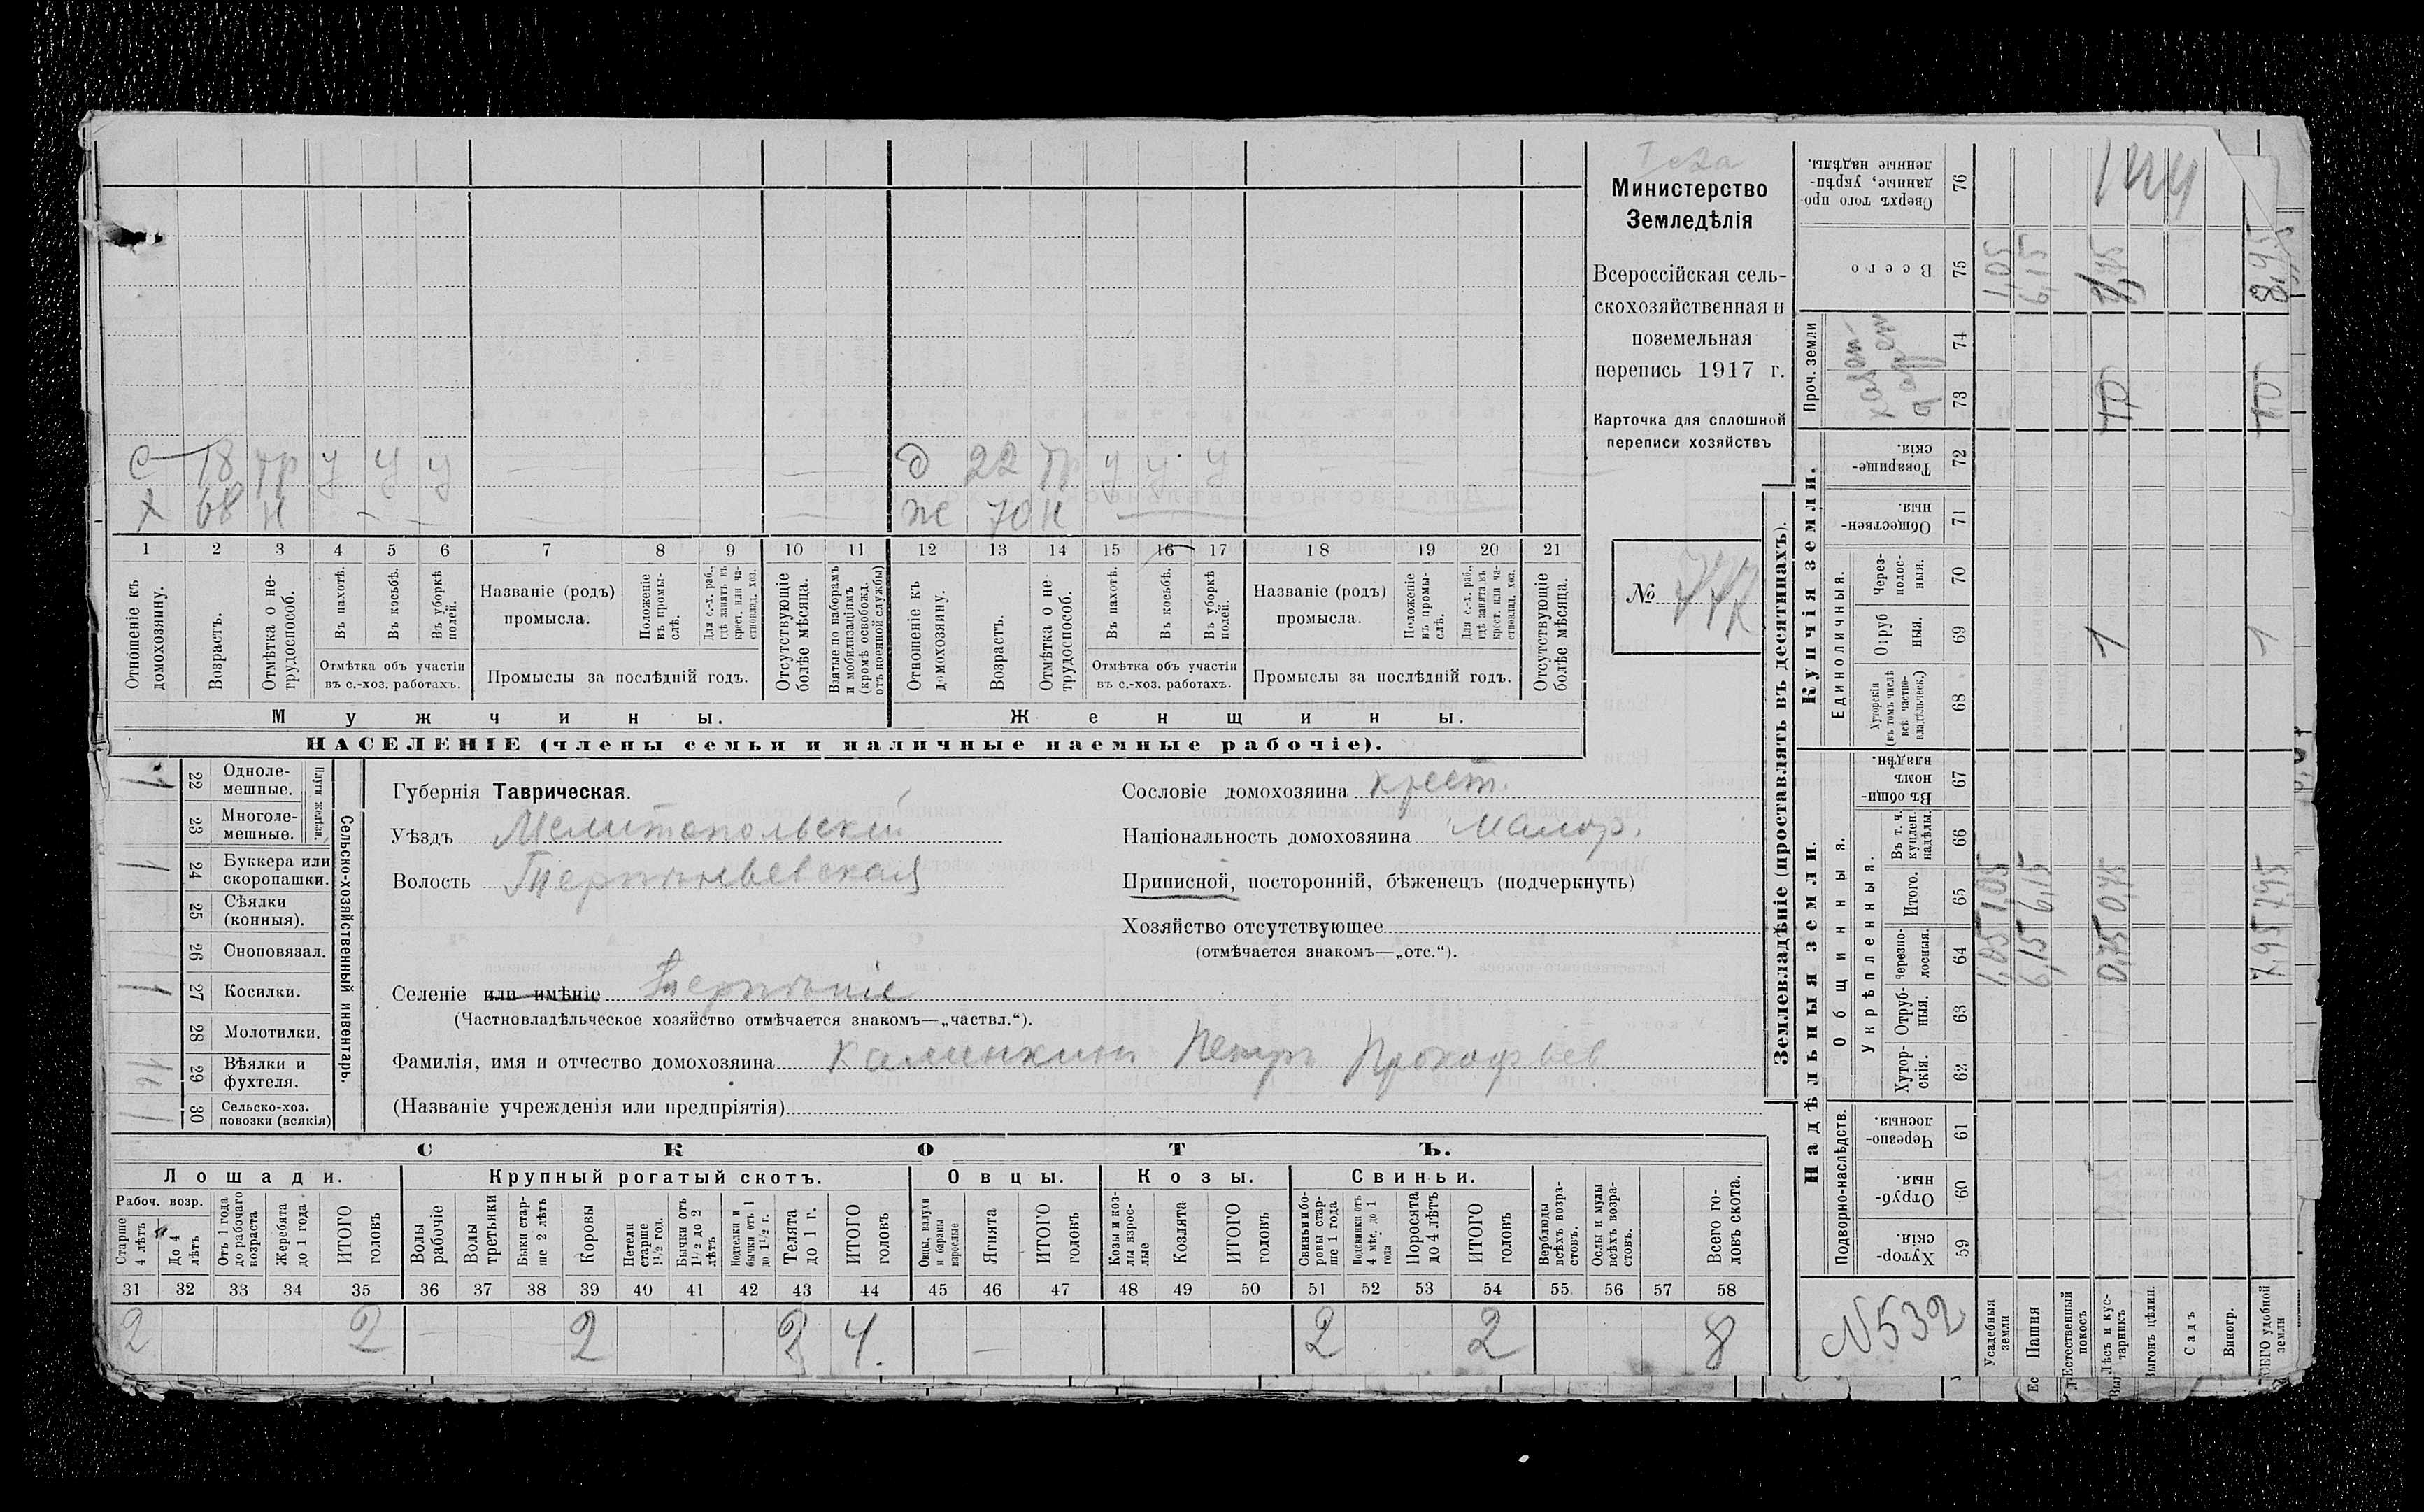 Министерство
Земледѣлія
Всероссійская сель-
скохозяйственная и
поземельная
перепись 1917 г.
Карточка для сплошной
переписи хозяйствъ
№ 777
С 18 тр у у у
Х 68 н
д 22 тр у у у
ж 70 н
1 2 3 4 5 6 7 8 9 10 11 12 13 14 15 16 17 18 19 20 21
Отношеніе къ домохозяину.
Возрастъ.
Отмѣтка о не-трудоспособ.
Въ пахотѣ.
Въ косьбѣ.
Въ уборкѣ полей.
Отмѣтка объ участіи
въ с.-хоз. работахъ.
Названіе (родъ)
промысла.
Положеніе въ промы-слѣ.
Для с.-х. раб., гдѣ занятъ въ крест. или ча-стновлад. хоз.
Промыслы за послѣдній годъ.
Отсутствующіе болѣе мѣсяца.
Взятые по наборамъ и мобилизаціямъ (кромѣ освобожд. отъ военной службы)
Отношеніе къ домохозяину.
Возрастъ.
Отмѣтка о не-трудоспособ.
Въ пахотѣ.
Въ косьбѣ.
Въ уборкѣ полей.
Отмѣтка объ участіи
въ с.-хоз. работахъ.
Названіе (родъ)
промысла.
Положеніе въ промы-слѣ.
Для с.-х. раб., гдѣ занята въ крест. или ча-стновлад. хоз.
Промыслы за послѣдній годъ.
Отсутствующіе болѣе мѣсяца.
Мужчины.
Женщины.
НАСЕЛЕНІЕ (члены семьи и наличные наемные рабочіе).
Сельско-хозяйственный инвентарь.
Плуги желѣзн.
1 22 Одноле-мешные.
23 Многоле-мешные.
1 24 Буккера или скоропашки.
25 Сѣялки (конныя).
26 Сноповязал.
1 27 Косилки.
28 Молотилки.
29 Вѣялки и фухтеля.
1 30 Сельско-хоз. повозки (всякія)
Губернія Таврическая.
Уѣздъ Мелитопольскій
Волость Терпѣньевская
Селеніе или имѣніе Терпѣніе
(Частновладѣльческое хозяйство отмѣчается знакомъ—„частвл.“).
Фамилія, имя и отчество домохозяина Калинкинъ Петръ Прокофьев
(Названіе учрежденія или предпріятія)
Сословіе домохозяина крест.
Національность домохозяина Малор.
Приписной, посторонній, бѣженецъ (подчеркнуть)
Хозяйство отсутствующее
(отмѣчается знакомъ—„отс.“).
СКОТЪ.
Лошади.
Крупный рогатый скотъ.
Овцы.
Козы.
Свиньи.
Рабоч. возр.
Старше 4 лѣтъ
До 4 лѣтъ
Отъ 1 года до рабочаго возраста
Жеребята до 1 года
ИТОГО головъ
Волы рабочіе
Волы третьяки
Быки стар-ше 2 лѣтъ
Коровы
Нетели старше 1½ год.
Бычки отъ 1½ до 2 лѣтъ
Подтелки и бычки отъ 1 до 1½ г.
Телята до 1 г.
ИТОГО головъ
Овцы, валухи и бараны взрослые
Ягнята
ИТОГО головъ
Козы и коз-лы взрос-лые
Козлята
ИТОГО головъ
Свиньи и бо-ровы стар-ше 1 года
Подсвинки отъ 4 мѣс. до 1 года
Поросята до 4 лѣтъ
ИТОГО головъ
Верблюды всѣхъ возра-стовъ.
Ослы и мулы всѣхъ возра-стовъ.
Всего го-ловъ скота.
31 32 33 34 35 36 37 38 39 40 41 42 43 44 45 46 47 48 49 50 51 52 53 54 55 56 57 58
2 2 2 2 4. 2 2 8
Землевладѣніе (проставлять въ десятинахъ).
Надѣльныя земли.
Купчія земли.
Проч. земли
Подворно-наслѣдств.
Общинныя.
Укрѣпленныя.
Единоличныя.
Хутор-скія. 59
Отруб-ныя. 60
Черезпо-лосныя. 61
Хутор-скія. 62
Отруб-ныя. 63
Черезпо-лосныя. 64
Итого. 65
Въ т. ч. куплен. надѣлы. 66
Въ общин-номъ владѣн. 67
Хуторскія (въ томъ числѣ всѣ частно-владѣльческ.) 68
Отруб ныя. 69
Через-полос-ныя. 70
Обществен-ныя. 71
Товарище-скія. 72
73
74
Всего 75
Сверхъ того про-данные, укрѣп-ленные надѣлы. 76
№532
Усадебныя земли 1,05 1,05 1,05
Пашня 6,15 6,15 6,15
Естественный покосъ
Лѣсъ и кус-тарникъ 0,75 0,75 1
Выгонъ цѣлин.
Садъ
Виногр.
ВСЕГО удобной земли 7,95 7,95 1 8,95